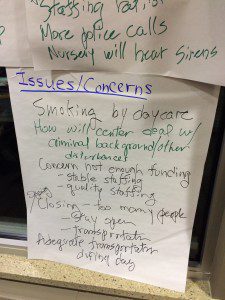 Staffing ratios
More police calls
Nursery will hear sirens
Issues/Concerns
Smoking by daycare
How will center deal w/
criminal background/other
disturbance?
Concern not enough funding
- stable staffing
- quality staffing
/Closing - too many people
- Stay open
- transportation
Adequate transportation
during day